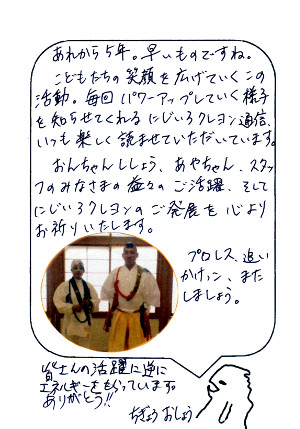 あれから5年。早いものですね。
こどもたちの笑顔を広げていくこの
活動。毎回パワーアップしていく様子
を知らせてくれるにじいろクレヨン通信、
いつも楽しく読ませていただいています。
おんちゃんししょう、あやちゃん、スタッ
フのみなさまの益々のご活躍、そして
にじいろクレヨンのご発展を心より
お祈りいたします。
プロレス、追い
かけっこ、また
しましょう。
皆さんの活躍に逆に
エネルギーをもらっています。
ありがとう!!
ちぎょうおしょう